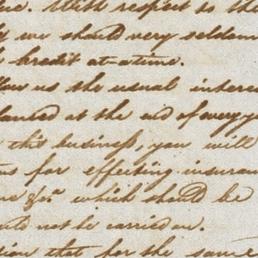 With respect to the
we should very seldom
kredit at a time.
us the usual interes
at the end of every y
the business, you will
for effecting insuran
&c. which should be
not be carried on.
that for the same